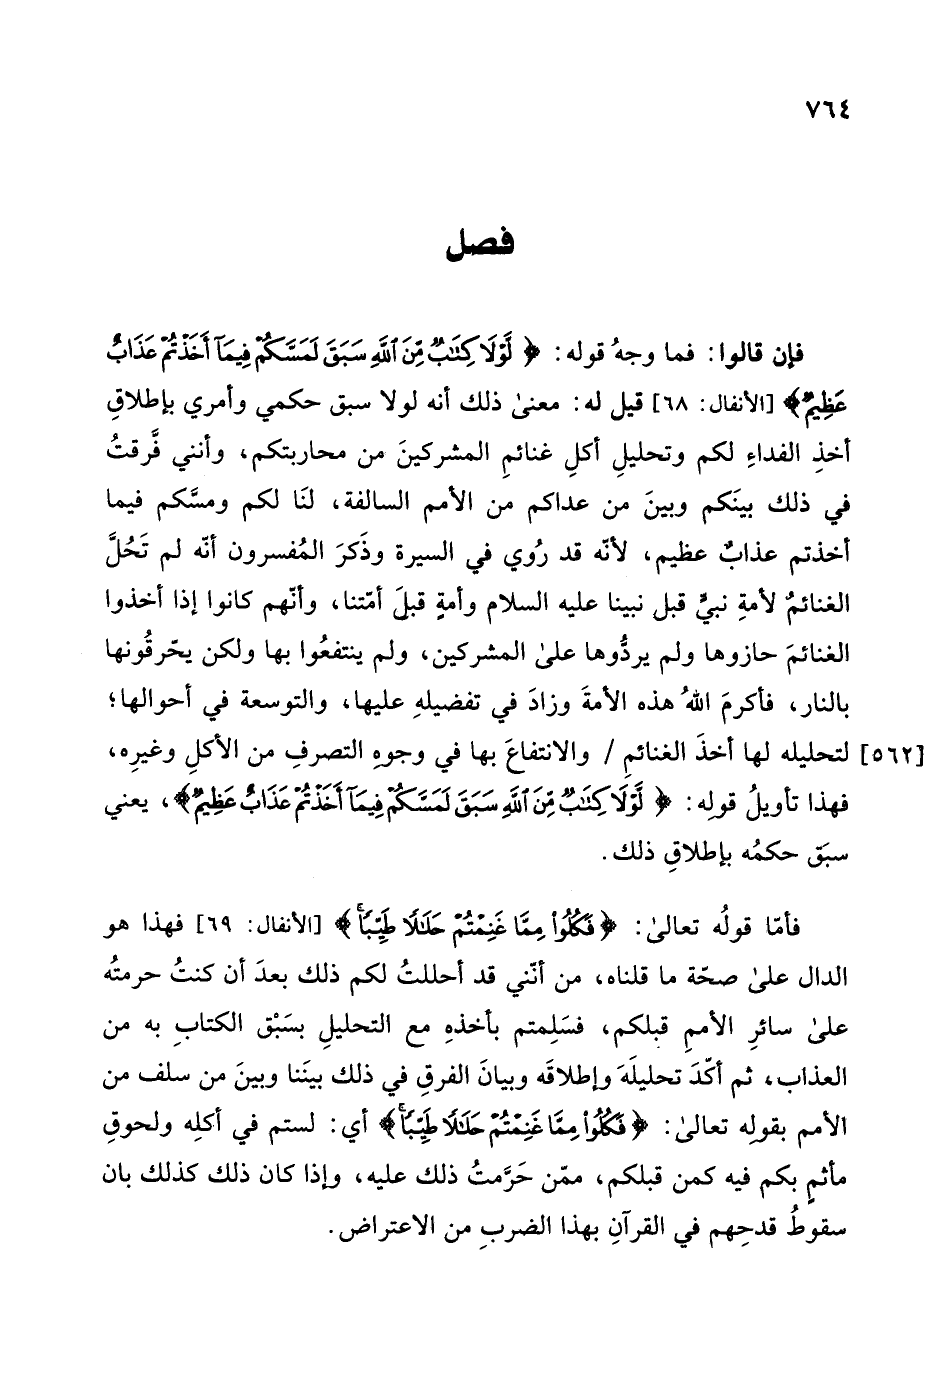 ٧٦٤
فصل
فإن قالوا: فما وجهُ قوله: ﴿لَّوْلَا كِتَٰبٌ مِّنَ ٱللَّهِ سَبَقَ لَمَسَّكُمْ فِيمَآ أَخَذْتُمْ عَذَابٌ
عَظِيمٌ﴾ [الأنفال: ٦٨] قيل له: معنىٰ ذلك أنه لولا سبق حكمي وأمري بإطلاقِ
أخذِ الفداءِ لكم وتحليلِ أكلِ غنائمِ المشركينَ من محاربتكم، وأنني فَّرقتُ
في ذلك بينَكم وبينَ من عداكم من الأمم السالفة، لنَا لكم ومسَّكم فيما
أخذتم عذابٌ عظيم، لأنّه قد رُوي في السيرة وذَكرَ المُفسرون أنّه لم تَحُلَّ
الغنائمُ لأمةِ نبيٍّ قبل نبينا عليه السلام وأمةٍ قبلَ أمّتنا، وأنّهم كانوا إذا أخذوا
الغنائمَ حازوها ولم يردُّوها علىٰ المشركين، ولم ينتفعُوا بها ولكن يحّرقُونها
بالنار، فأكرمَ اللهُ هذه الأمةَ وزادَ في تفضيلهِ عليها، والتوسعة في أحوالها؛
[٥٦٢] لتحليله لها أخذَ الغنائمِ / والانتفاعَ بها في وجوهِ التصرفِ من الأكلِ وغيرِه،
فهذا تأويلُ قولِه: ﴿لَّوْلَا كِتَٰبٌ مِّنَ ٱللَّهِ سَبَقَ لَمَسَّكُمْ فِيمَآ أَخَذْتُمْ عَذَابٌ عَظِيمٌ﴾، يعني
سبَق حكمُه بإطلاقِ ذلك.
فأمّا قولُه تعالىٰ: ﴿فَكُلُوا۟ مِمَّا غَنِمْتُمْ حَلَٰلًا طَيِّبًا ۚ﴾ [الأنفال: ٦٩] فهذا هو
الدال علىٰ صحّة ما قلناه، من أنّني قد أحللتُ لكم ذلك بعدَ أن كنتُ حرمتُه
علىٰ سائرِ الأممِ قبلكم، فسَلِمتم بأخذهِ مع التحليلِ بسَبْق الكتابِ به من
العذاب، ثم أكّدَ تحليلَهَ وإطلاقَه وبيانَ الفرقِ في ذلك بينَنا وبينَ من سلف من
الأمم بقولِه تعالىٰ: ﴿فَكُلُوا۟ مِمَّا غَنِمْتُمْ حَلَٰلًا طَيِّبًا ۚ﴾ أي: لستم في أكلِه ولحوقِ
مأثمٍ بكم فيه كمن قبلكم، ممّن حَرَّمتُ ذلك عليه، وإذا كان ذلك كذلك بان
سقوطُ قدحِهم في القرآنِ بهذا الضربِ من الاعتراض.